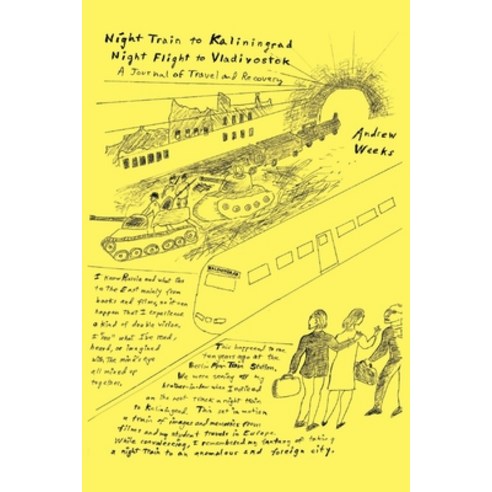 Night Train to Kaliningrad
Night Flight to Vladivostok
A Journal of Travel and Recovery
Andrew
Weeks
KALININGRAD
I know Russia and what lies
to the East mainly from
books and films, so it can
happen that I experience
a kind of double vision.
I "see" what I've read,
heard, or imagined
with the mind's eye
all mixed up
together.
This happened to me
ten years ago at the
Berlin Main Train Station.
We were seeing off my
brother-in-law when I noticed
on the next track a night train
to Kaliningrad. This set in motion
a train of images and memories from
films and my student travels in Europe.
While convalescing, I remembered my fantasy of taking
a night train to an anomalous and foreign city.